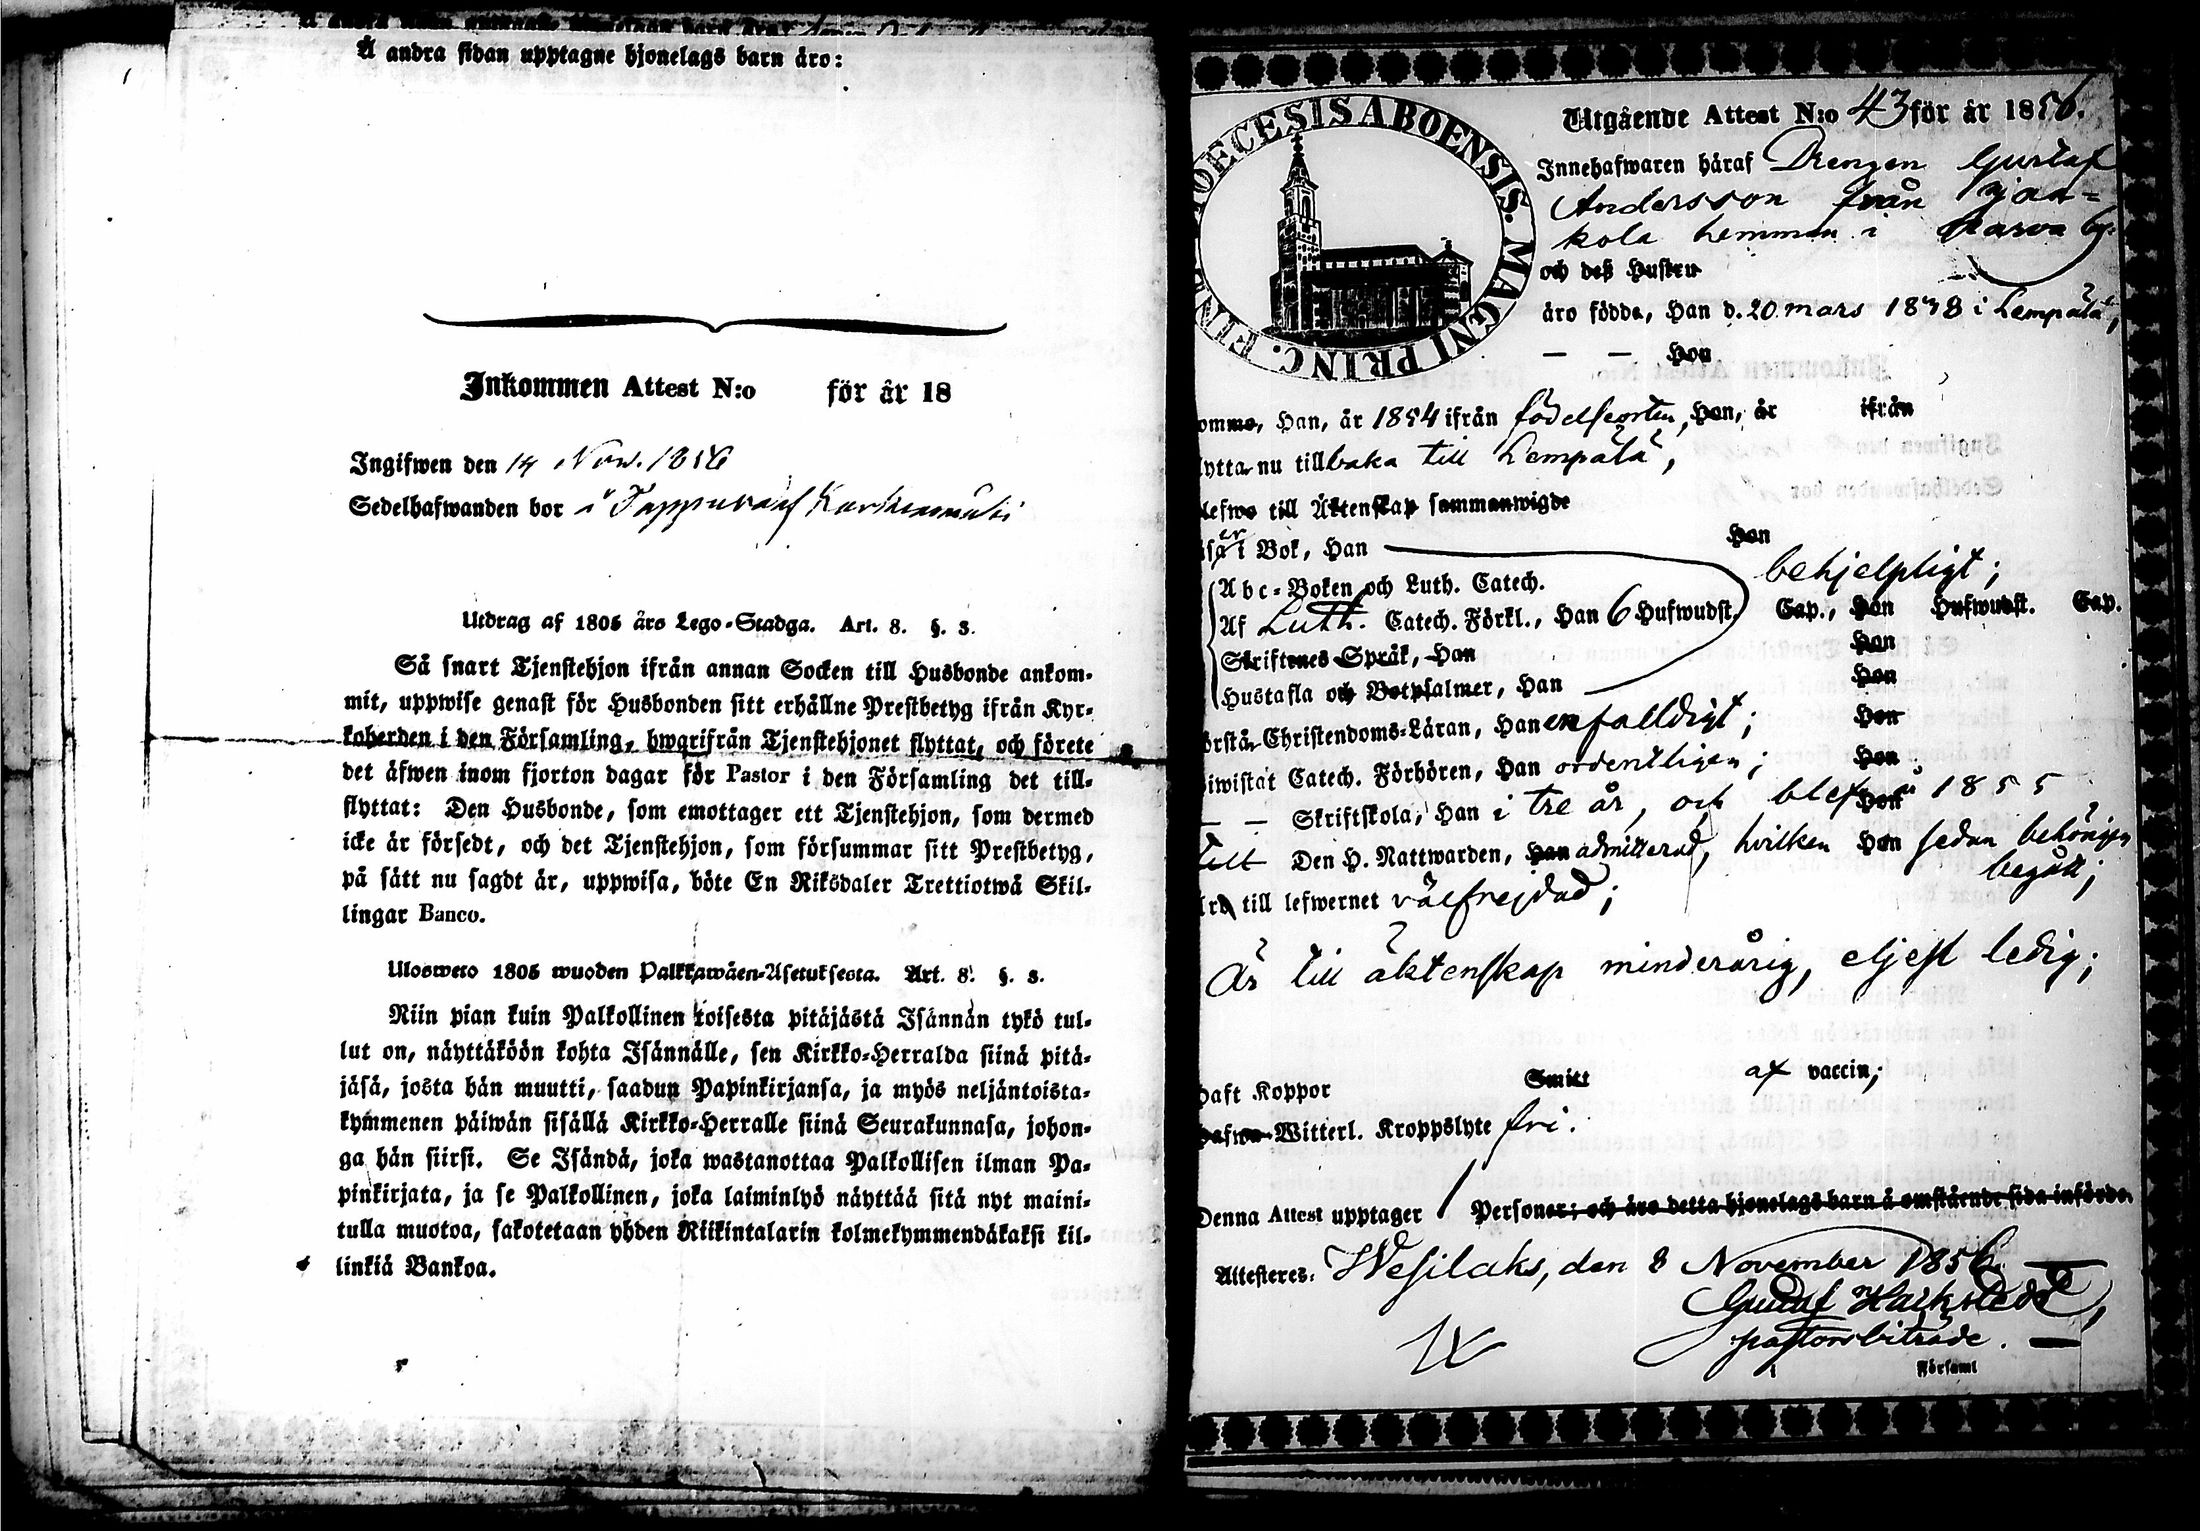 Å andra sidan upptagne hjonelags barn äro:
Inkommen Attest N:o för år 18
Ingifwen den 14 Nov. 1856
Sedelhafwanden bor i
Utdrag af 1805 års Lego-Stadga. Art. 8. §. 3.
Så snart Tjenstehjon ifrån annan Socken till Husbonde ankom-
mit, uppwise genast för Husbonden sitt erhållne Prestbetyg ifrån Kyr-
koherden i den Församling, hwarifrån Tjenstehjonet flyttat, och förete
det äfwen inom fjorton dagar för Pastor i den Församling det till-
flyttat: Den Husbonde, som emottager ett Tjenstehjon, som dermed
icke är försedt, och det Tjenstehjon, som försummar sitt Prestbetyg,
på sätt nu sagdt är, uppwisa, böte En Riksdaler Trettiotwå Skil-
lingar Banco.
Ulosweto 1805 wuoden Palkkawäen-Asetuksesta. Art. 8. §. 3.
Niin pian kuin Palkollinen toisesta pitäjästä Isännän tykö tul-
lut on, näyttäköön kohta Isännälle, sen Kirkko-Herralda siinä pitä-
jäsä, josta hän muutti, saadun Papinkirjansa, ja myös neljäntoista-
kymmenen päiwän sisällä Kirkko-Herralle siinä Seurakunnasa, johon-
ga hän siirsi. Se Isändä, joka wastanottaa Palkollisen ilman Pa-
pinkirjata, ja se Palkollinen, joka laiminlyö näyttää sitä nyt maini-
tulla muotoa, sakotetaan yhden Riikintalarin kolmekymmendäkaksi kil-
linkiä Bankoa.
DIOECESIS ABOENSIS. MAGNI PRINC. FINL
Utgående Attest N:o 43 för år 1856.
Innehafwaren häraf Drengen Gustaf
Andersson från Yjas-
kola hemman i Narva by.
och deß Hustru
äro födde, Han d. 20 mars 1838 i Lempälä,
— — Hon
omme, Han, år 1854 ifrån födelseorten, Hon, år ifrån
lytta nu tillbaka till Lempälä,
lefwe till Äktenskap sammanwigde
äser i Bok, Han Hon
behjelpligt;
Abc-Boken och Luth. Catech.
Af Luth. Catech. Förkl., Han 6 Hufwudst. Cap., Hon Hufwudst. Cap.
Skriftenes Språk, Han Hon
Hustafla och Botpsalmer, Han Hon
örstå Christendoms-Läran, Han enfalldigt; Hon
iwistat Catech. Förhören, Han ordentligen; Hon
— — Skriftskola, Han i tre år, och blef år 1855 Hon
till Den H. Nattwarden, Han admitterad, hvilken Han sedan behörigen
begått;
Är till lefwernet välfrejdad;
Är till äktenskap minderårig, eljest ledig;
Haft Koppor Smitt af vaccin;
Hafwa Witterl. Kroppslyte fri.
Denna Attest upptager 1 Personer; och äro detta hjonelags barn å omstående sida införde.
Attesteres: Wesilaks, den 8 November 1856.
Gustaf Harkstedt,
pastorsbiträde.
Församl